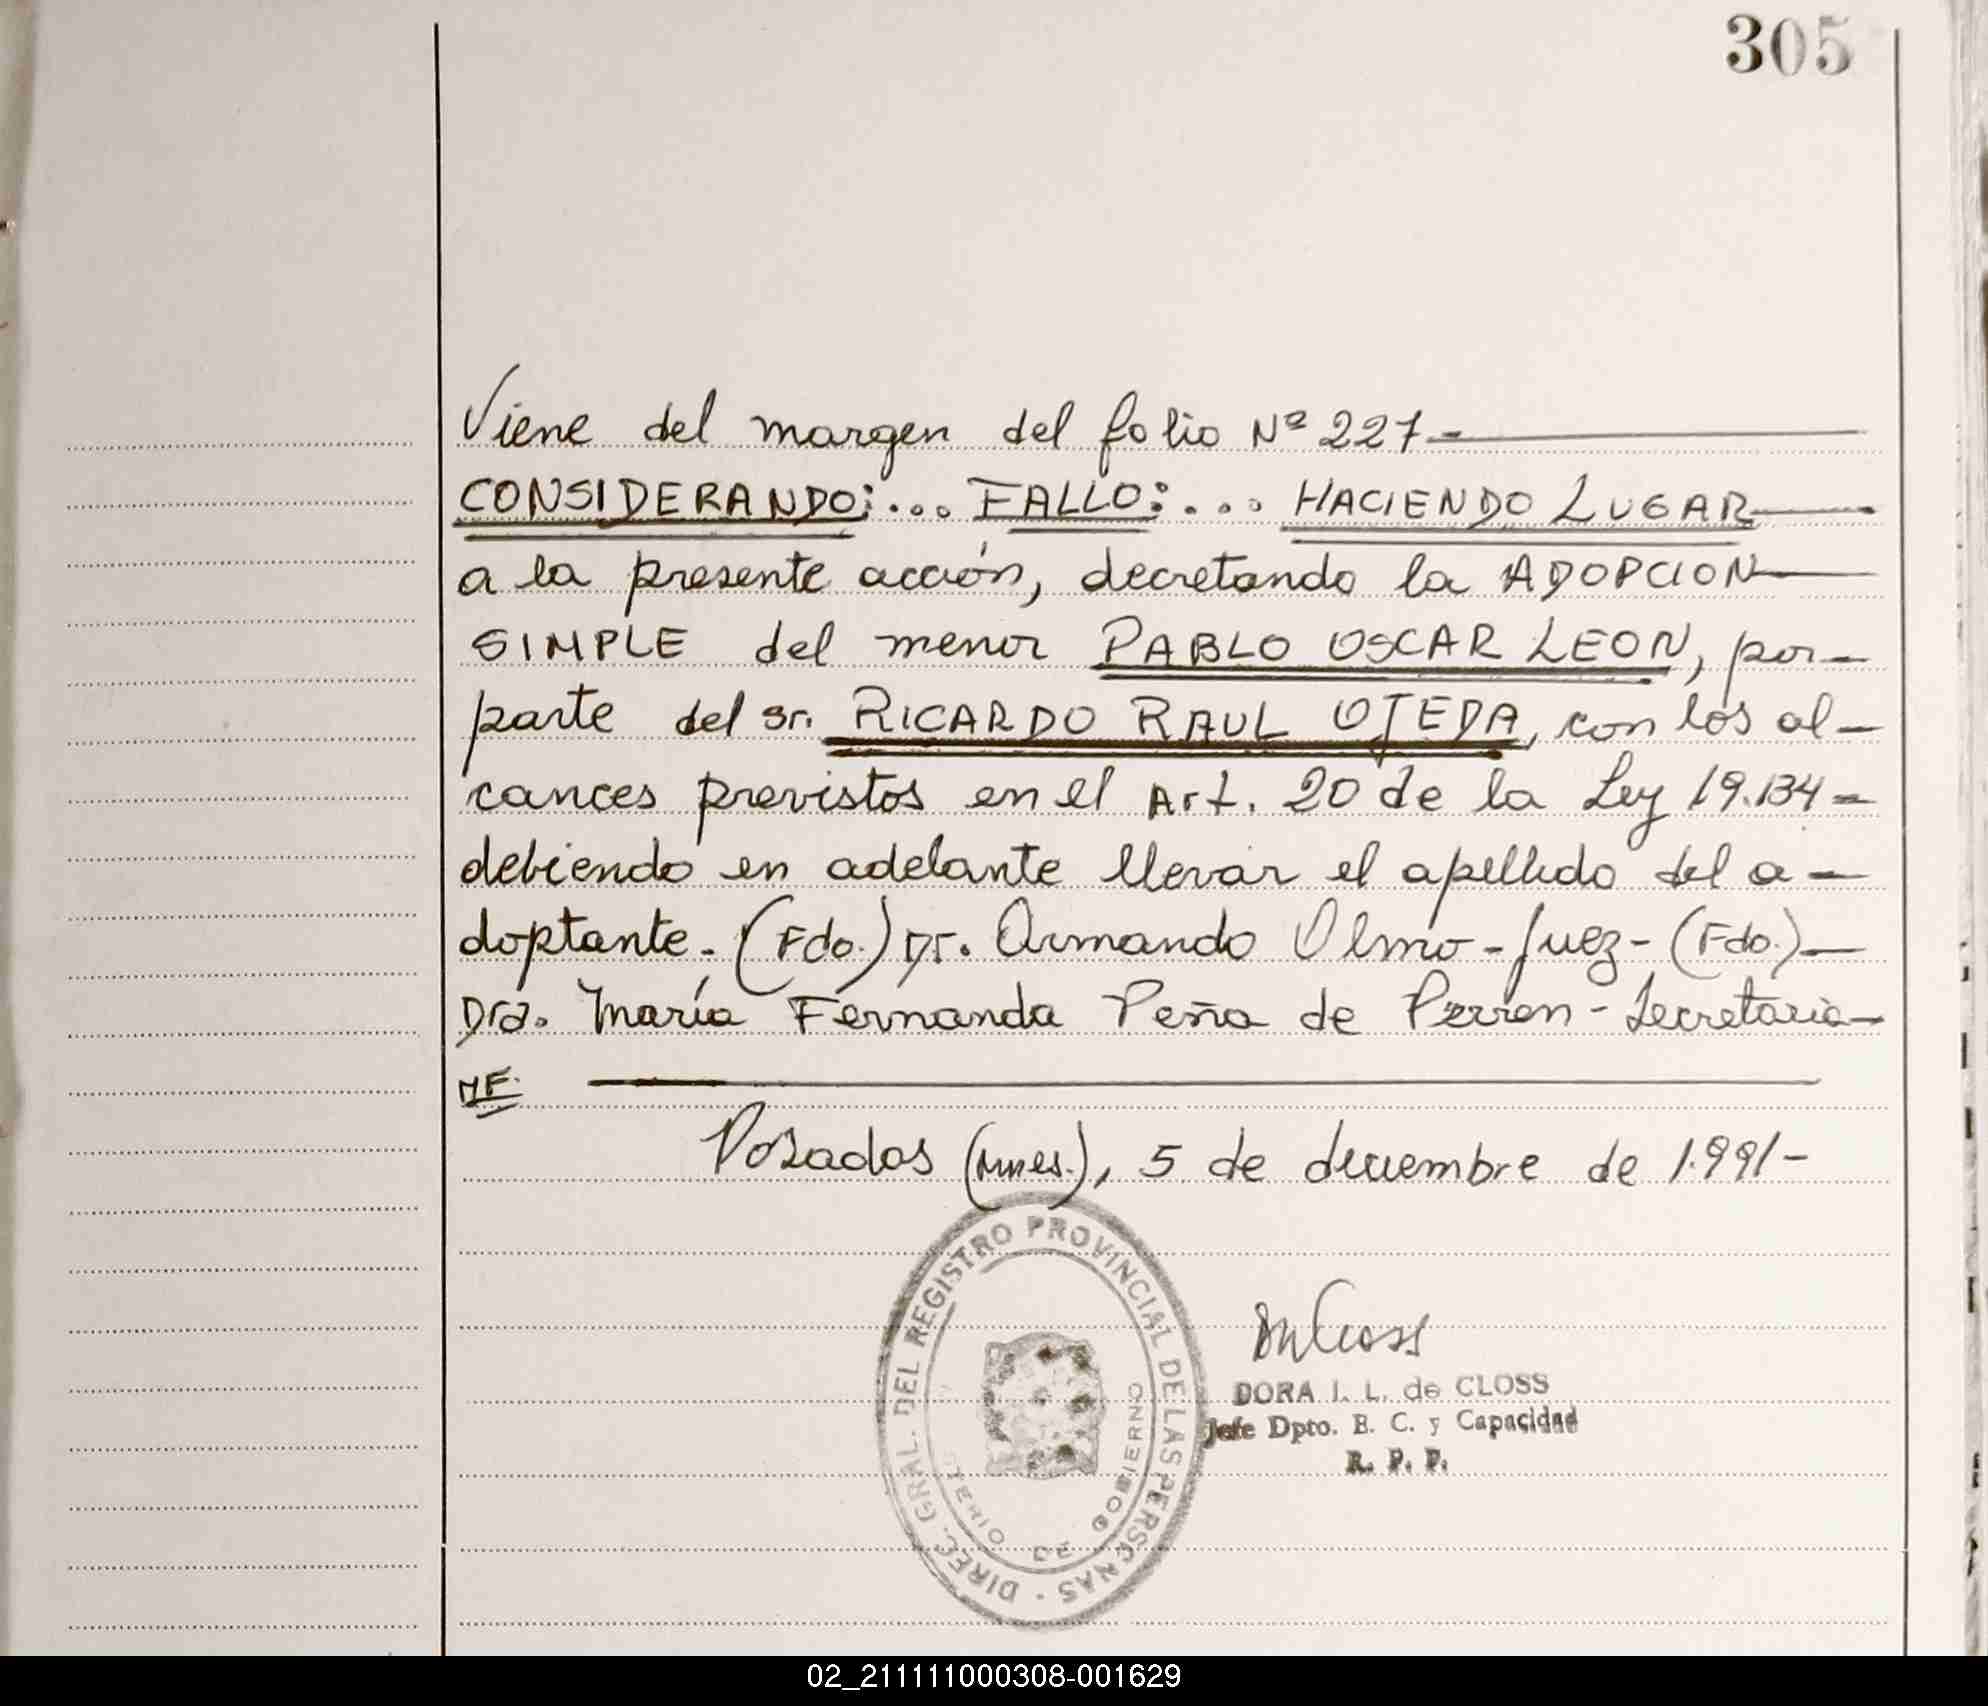 305
Viene del margen del folio Nº 227-
CONSIDERANDO:... FALLO:... HACIENDO LUGAR
a la presente acción, decretando la ADOPCION
SIMPLE del menor PABLO OSCAR LEON, por-
parte del sr. RICARDO RAUL OJEDA, con los al-
cances previstos en el Art. 20 de la Ley 19.134-
debiendo en adelante llevar el apellido del a-
doptante.- (Fdo.) Dr. Armando Olmo - Juez - (Fdo.)-
Dra. María Fernanda Peña de Perren - Secretaria-
MF.
Posadas (Mnes.), 5 de diciembre de 1.991-
DIREC. GRAL. DEL REGISTRO PROVINCIAL DE LAS PERSONAS
TERIO DE GOBIERNO
DORA I. L. de CLOSS
Jefe Dpto. E. C. y Capacidad
R. P. P.
02_211111000308-001629